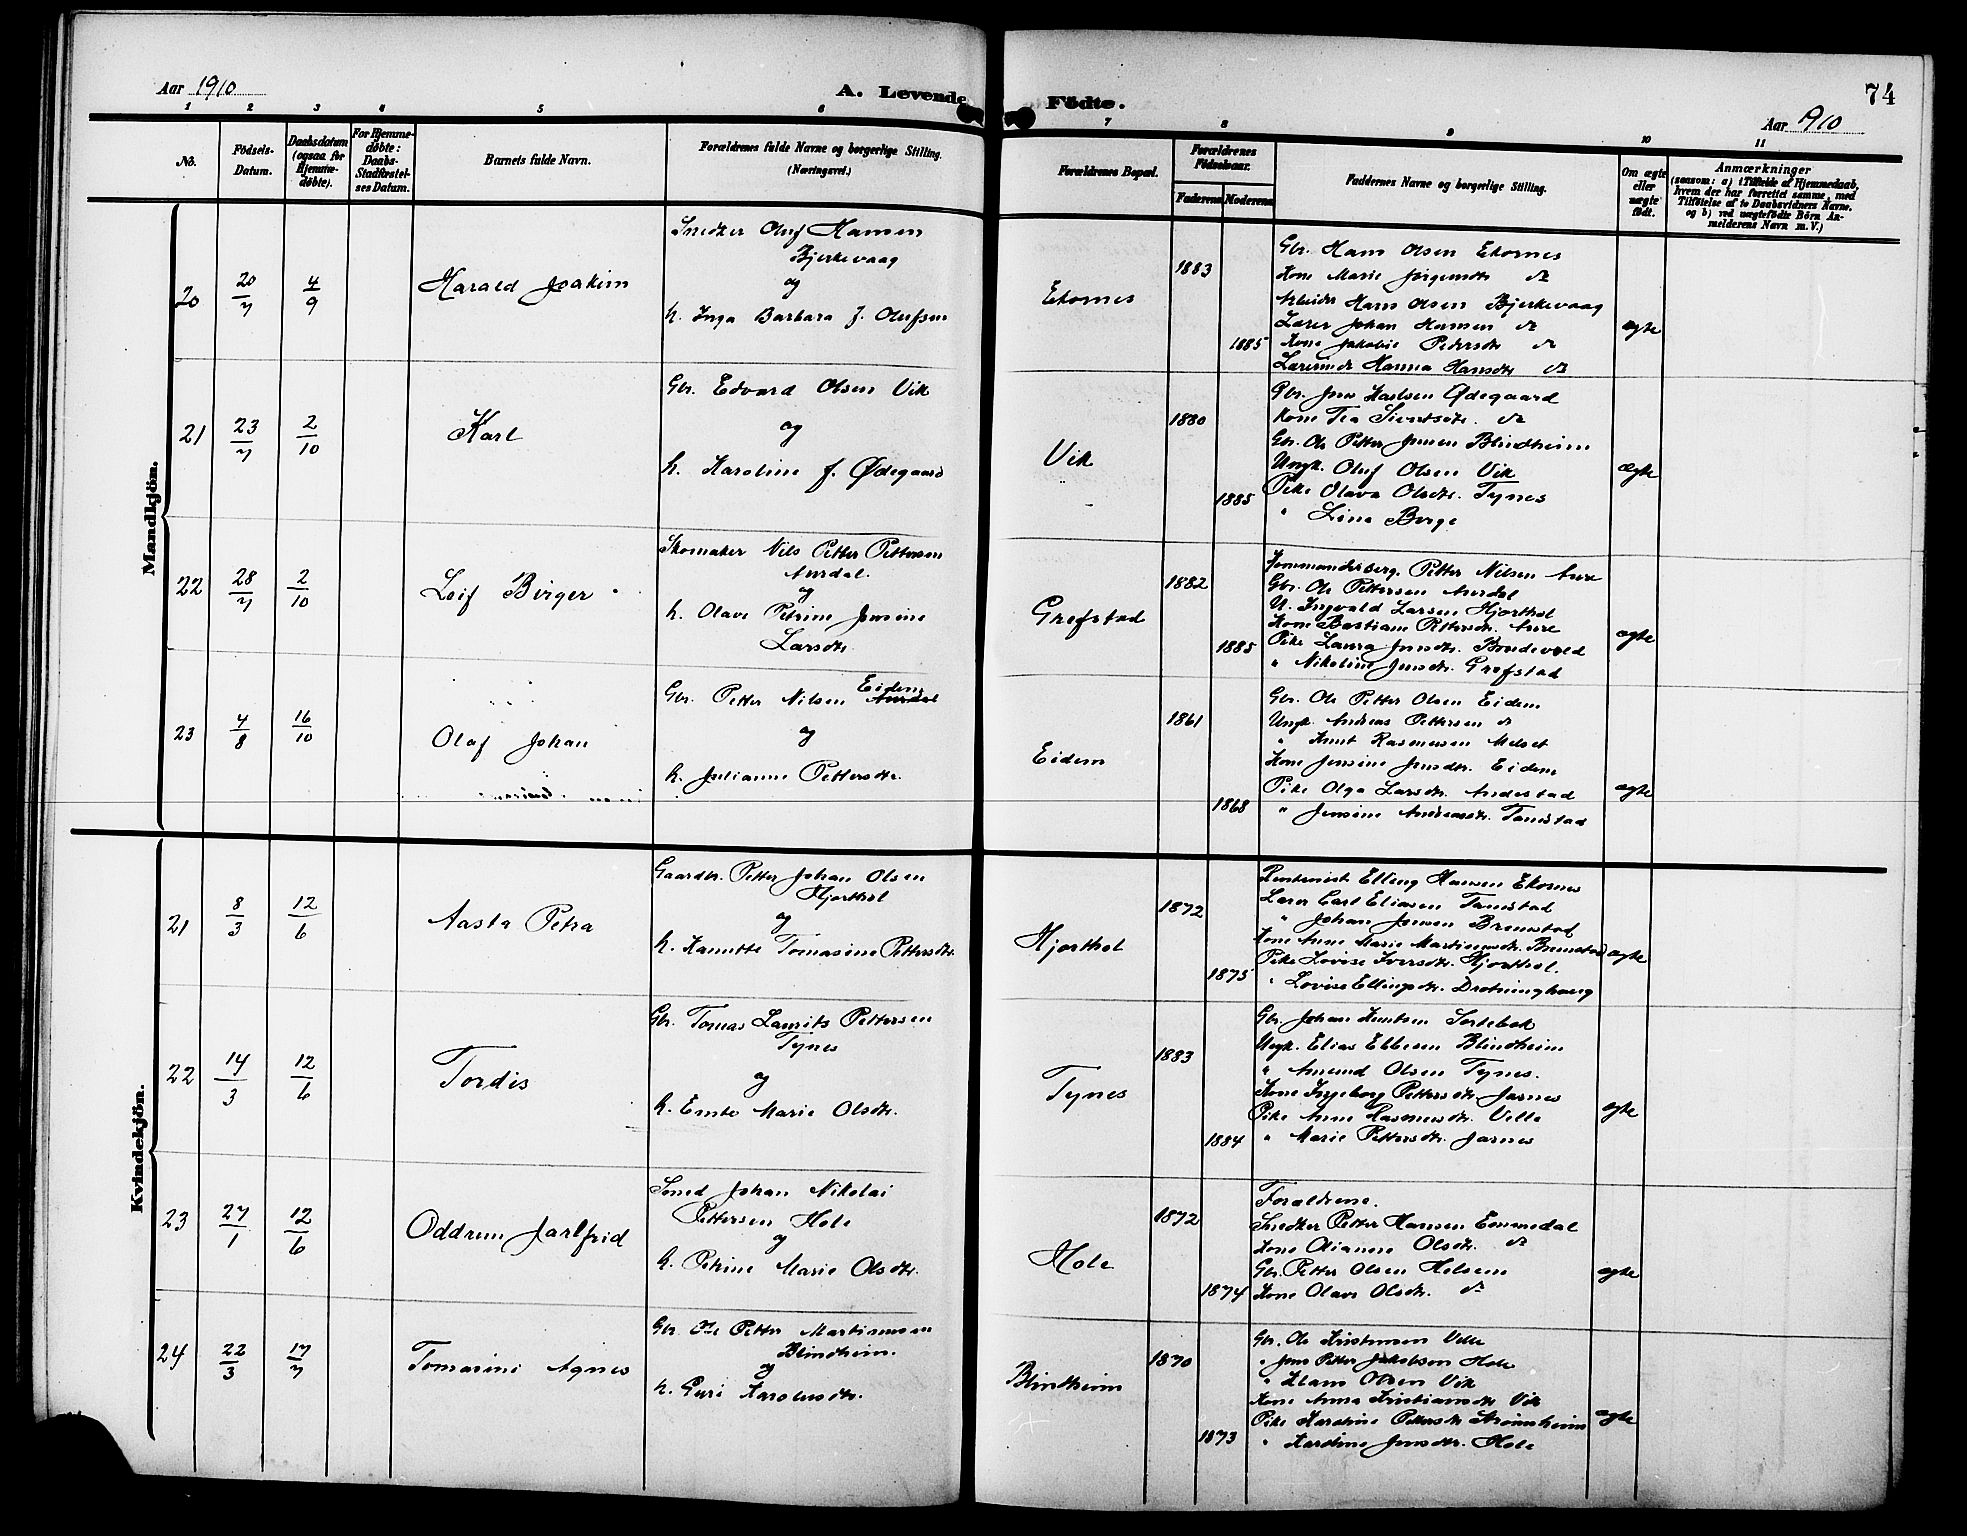 Aar 1910
A. Levende Födte.
74
Aar 1910
1 2 3 4 5 6 7 8 9 10 11
No.
Födsels-
Datum.
Daabsdatum
(ogsaa for
Hjemme-
döbte).
For Hjemme-
döbte:
Daabs-
Stadfæstel-
ses Datum.
Barnets fulde Navn.
Forældrenes fulde Navne og borgerlige Stilling.
(Næringsvei.)
Forældrenes Bopæl.
Forældrenes
Födselsaar.
Faderens Moderens
Faddernes Navne og borgerlige Stilling.
Om ægte
eller
uægte
født.
Anmærkninger
(saasom: a) i Tilfælde af Hjemmedaab,
hvem der har forrettet samme, med
Tilföielse af to Daabsvidners Navne.
og b) ved uægtefödte Börn An-
melderens Navn m. V.)
Mandkjön.
20
20/7
4/9
Harald Joakim
Snedker Oluf Hansen
Bjerkevaag
og
h. Inga Barbara J. Olufsen
Ekornes
1883
1885
Gbr. Hans Olsen Ekornes
Kone Marie Jørgensdtr do
Arbeider Hans Olsen Bjerkevaag
Lærer Johan Hansen do
Kone Jakobie Pedersdtr do
Lærerinde Hanna Hansdtr do
ægte
21
23/7
2/10
Karl
Gbr. Edvard Olsen Vik
og
h. Karoline f. Ødegaard
Vik
1880
1885
Gbr. Jens Karlsen Ødegaard
Kone Tea Sivertsdtr. do
Gbr. Ole Petter Jensen Blindheim
Ungk. Oluf Olsen Vik
Pike Olava Olsdtr. Tynes
" Lina Berge
ægte
22
28/7
2/10
Leif Birger
Skomaker Nils Petter Pettersen
Aurdal.
og
h. Olave Petrine Jensine
Larsdtr.
Grefstad
1882
1885
Petter Nilsen Aure
Gbr. Ole Pettersen Aurdal
U. Ingvald Larsen Hjorthol
Kone Bastiane Pettersdtr. Aure
Pike Laura Jensdtr. Brudevold
" Nikoline Jensdtr. Grefstad
ægte
23
7/8
16/10
Olaf Johan
Gbr. Petter Nilsen Eidem
og
h. Julianne Pettersdtr.
Eidem
1861
1868
Gbr. Ole Petter Olsen Eidem
Ungk. Andreas Pettersen do
" Knut Rasmussen Melset
Kone Jensine Jensdtr. Eidem
Pike Olga Larsdtr. Andestad
" Jensine Andreasdtr. Tandstad
ægte
Kvindekjön.
21
8/3
12/6
Aasta Petra
Gaardbr. Petter Johan Olsen
Hjorthol
og
h. Hanette Tomasine Pettersdtr.
Hjorthol
1872
1875
Elling Hansen Ekornes
Lærer Carl Eliasen Tandstad
" Johan Jensen Brunstad
Kone Anne Marie Martinusdtr. Brunstad
Pike Lovise Iversdtr. Hjorthol.
" Lovise Ellingsdtr. Drotninghaug
ægte
22
14/3
12/6
Tordis
Gbr. Tomas Laurits Pettersen
Tynes
og
h. Emte Marie Olsdtr.
Tynes
1883
1884
Gbr. Johan Knutsen Sortebok
Ungk. Elias Ebbesen Blindheim
" Amund Olsen Tynes.
Kone Ingeborg Pettersdtr Jarnes
Pike Anne Rasmusdtr. Velle
" Marie Pettersdtr. Jarnes
ægte
23
27/1
12/6
Oddrun Jarlfrid
Smed Johan Nikolai
Pettersen Hole
og
h. Petrine Marie Olsdtr.
Hole
1872
1874
Forældrene.
Snedker Petter Hansen Emmedal
Kone Olianne Olsdtr. do
Gbr. Petter Olsen Helsem
Kone Olave Olsdtr. do
ægte
24
22/3
17/7
Tomasine Agnes
Gbr. Ole Petter Martinussen
Blindheim.
og
h. Guri Karolusdtr.
Blindheim
1870
1873
Gbr. Ole Kristensen Velle
" Jens Petter Jakobsen Hole
" Hans Olsen Vik
Kone Anna Kristiansdtr Vik
Pike Karoline Pettersdtr Strømsheim
" Karoline Jensdtr. Hole
ægte